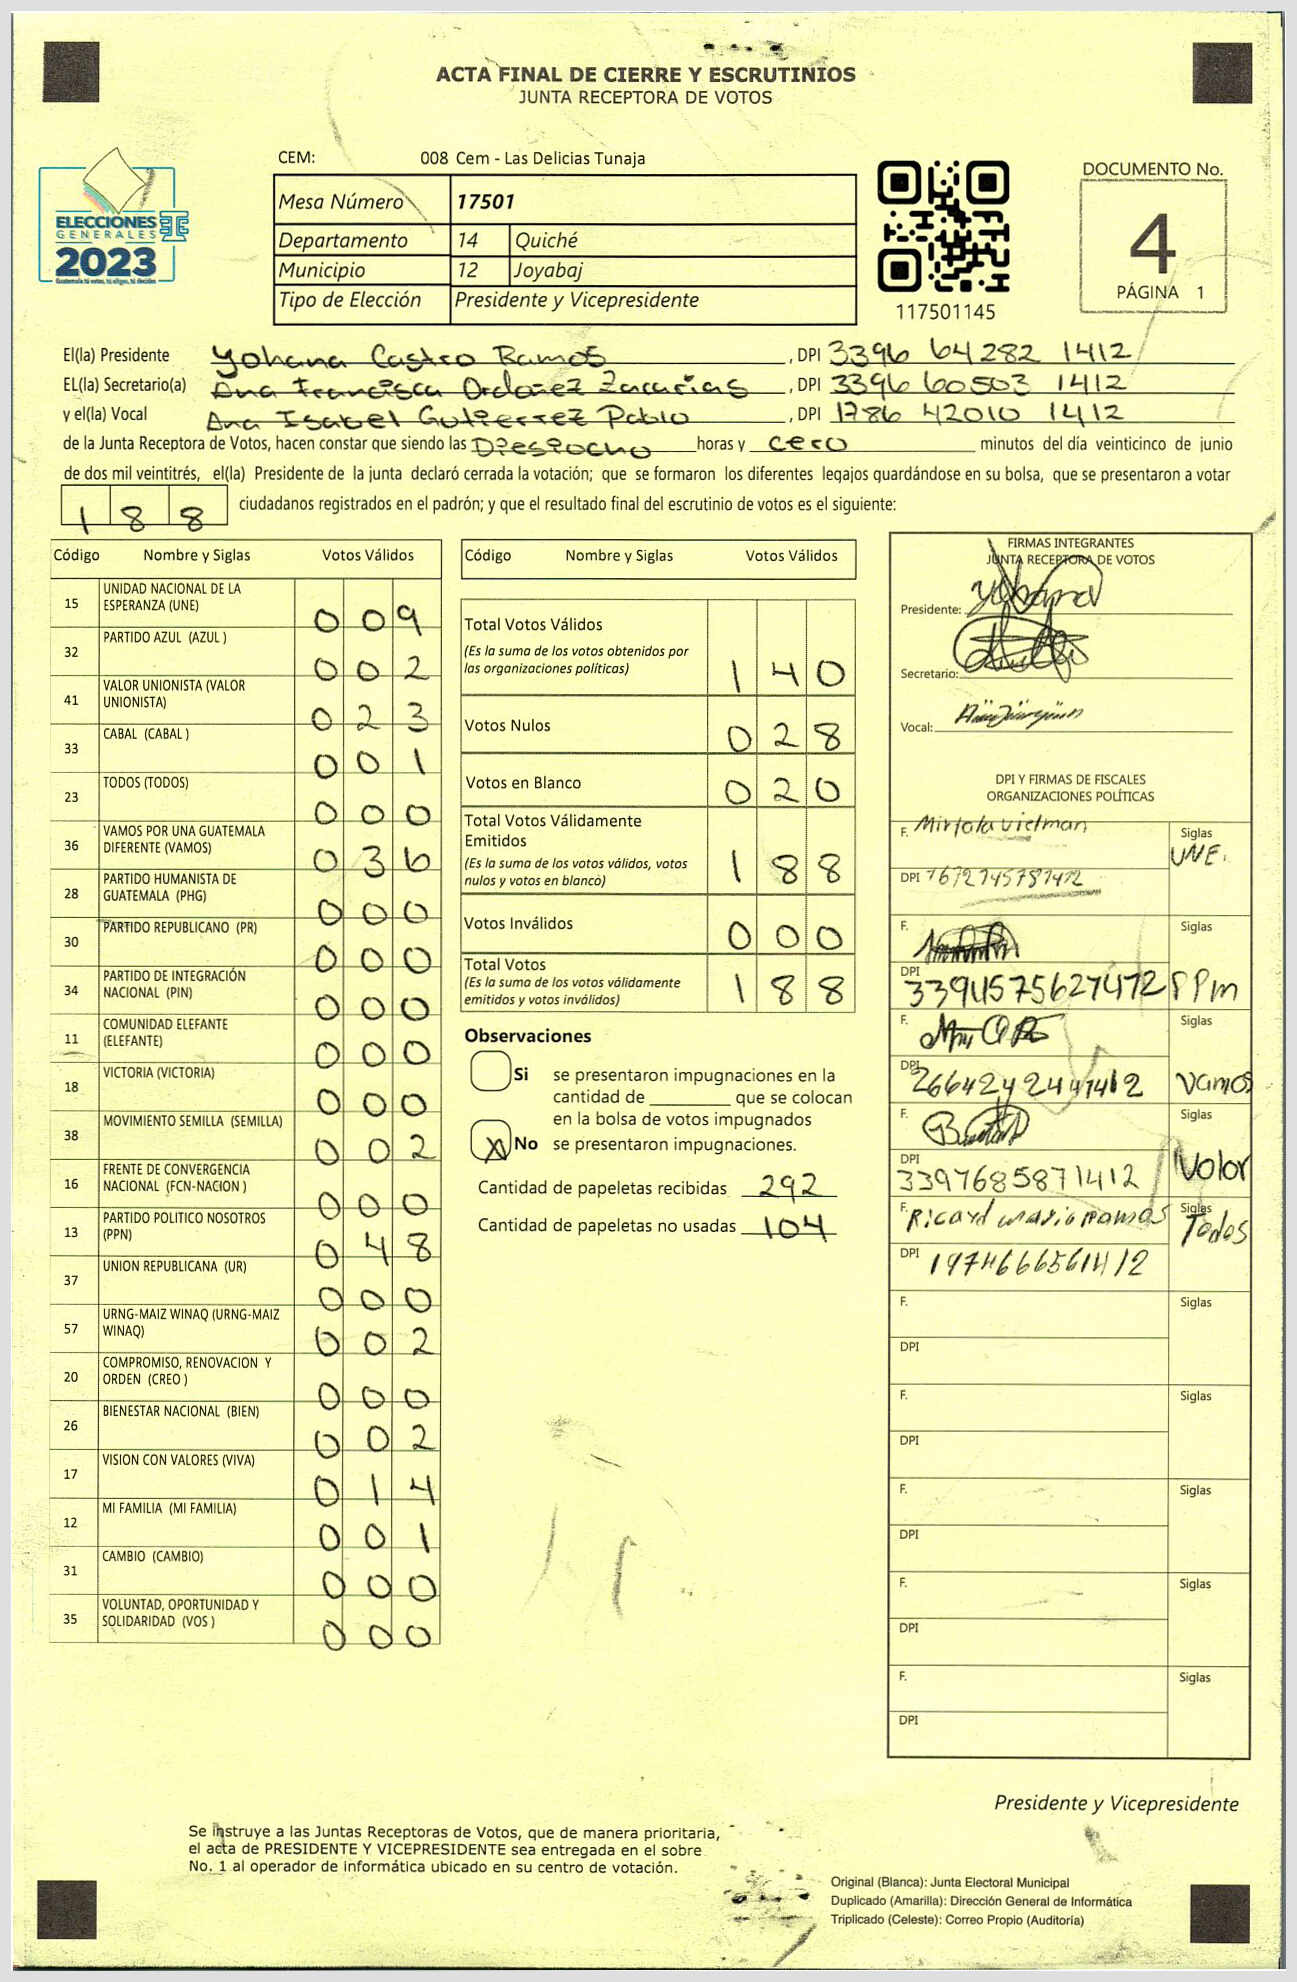 ACTA FINAL DE CIERRE Y ESCRUTINIOS
JUNTA RECEPTORA DE VOTOS
ELECCIONES
GENERALES
2023
Guatemala tú votas, tú eliges, tú decides
CEM: 008 Cem - Las Delicias Tunaja
Mesa Número 17501
Departamento 14 Quiché
Municipio 12 Joyabaj
Tipo de Elección Presidente y Vicepresidente
117501145
DOCUMENTO No.
4
PÁGINA 1
El(la) Presidente Yohana Castro Ramos, DPI 3396 64282 1412
EL(la) Secretario(a) Ana Francisca Ordoñez Zacarias, DPI 3396 60503 1412
y el(la) Vocal Ana Isabel Gutierrez Pablo, DPI 1786 42010 1412
de la Junta Receptora de Votos, hacen constar que siendo las Diesiocho horas y cero minutos del día veinticinco de junio
de dos mil veintitrés, el(la) Presidente de la junta declaró cerrada la votación; que se formaron los diferentes legajos guardándose en su bolsa, que se presentaron a votar
188 ciudadanos registrados en el padrón; y que el resultado final del escrutinio de votos es el siguiente:
Código Nombre y Siglas Votos Válidos
15 UNIDAD NACIONAL DE LA ESPERANZA (UNE) 009
32 PARTIDO AZUL (AZUL ) 002
41 VALOR UNIONISTA (VALOR UNIONISTA) 023
33 CABAL (CABAL ) 001
23 TODOS (TODOS) 000
36 VAMOS POR UNA GUATEMALA DIFERENTE (VAMOS) 036
28 PARTIDO HUMANISTA DE GUATEMALA (PHG) 000
30 PARTIDO REPUBLICANO (PR) 000
34 PARTIDO DE INTEGRACIÓN NACIONAL (PIN) 000
11 COMUNIDAD ELEFANTE (ELEFANTE) 000
18 VICTORIA (VICTORIA) 000
38 MOVIMIENTO SEMILLA (SEMILLA) 002
16 FRENTE DE CONVERGENCIA NACIONAL (FCN-NACION ) 000
13 PARTIDO POLITICO NOSOTROS (PPN) 048
37 UNION REPUBLICANA (UR) 000
57 URNG-MAIZ WINAQ (URNG-MAIZ WINAQ) 002
20 COMPROMISO, RENOVACION Y ORDEN (CREO ) 000
26 BIENESTAR NACIONAL (BIEN) 002
17 VISION CON VALORES (VIVA) 014
12 MI FAMILIA (MI FAMILIA) 001
31 CAMBIO (CAMBIO) 000
35 VOLUNTAD, OPORTUNIDAD Y SOLIDARIDAD (VOS ) 000
Código Nombre y Siglas Votos Válidos
Total Votos Válidos 140
(Es la suma de los votos obtenidos por
las organizaciones políticas)
Votos Nulos 028
Votos en Blanco 020
Total Votos Válidamente
Emitidos 188
(Es la suma de los votos válidos, votos
nulos y votos en blanco)
Votos Inválidos 000
Total Votos 188
(Es la suma de los votos válidamente
emitidos y votos inválidos)
Observaciones
Si se presentaron impugnaciones en la
cantidad de ________ que se colocan
en la bolsa de votos impugnados
X No se presentaron impugnaciones.
Cantidad de papeletas recibidas 292
Cantidad de papeletas no usadas 104
FIRMAS INTEGRANTES
JUNTA RECEPTORA DE VOTOS
Presidente: Yohana
Secretario:
Vocal:
DPI Y FIRMAS DE FISCALES
ORGANIZACIONES POLÍTICAS
F. Siglas UNE.
DPI
F. Siglas
DPI 3394157562 PPm
F. Siglas
DPI 2664242441412 Vamos
F. Siglas
DPI 3397685871412 Valor
F. Ricard mario Ramos Siglas Todos
DPI 1974666561412
F. Siglas
DPI
F. Siglas
DPI
F. Siglas
DPI
F. Siglas
DPI
F. Siglas
DPI
Presidente y Vicepresidente
Se instruye a las Juntas Receptoras de Votos, que de manera prioritaria,
el acta de PRESIDENTE Y VICEPRESIDENTE sea entregada en el sobre
No. 1 al operador de informática ubicado en su centro de votación.
Original (Blanca): Junta Electoral Municipal
Duplicado (Amarilla): Dirección General de Informática
Triplicado (Celeste): Correo Propio (Auditoría)